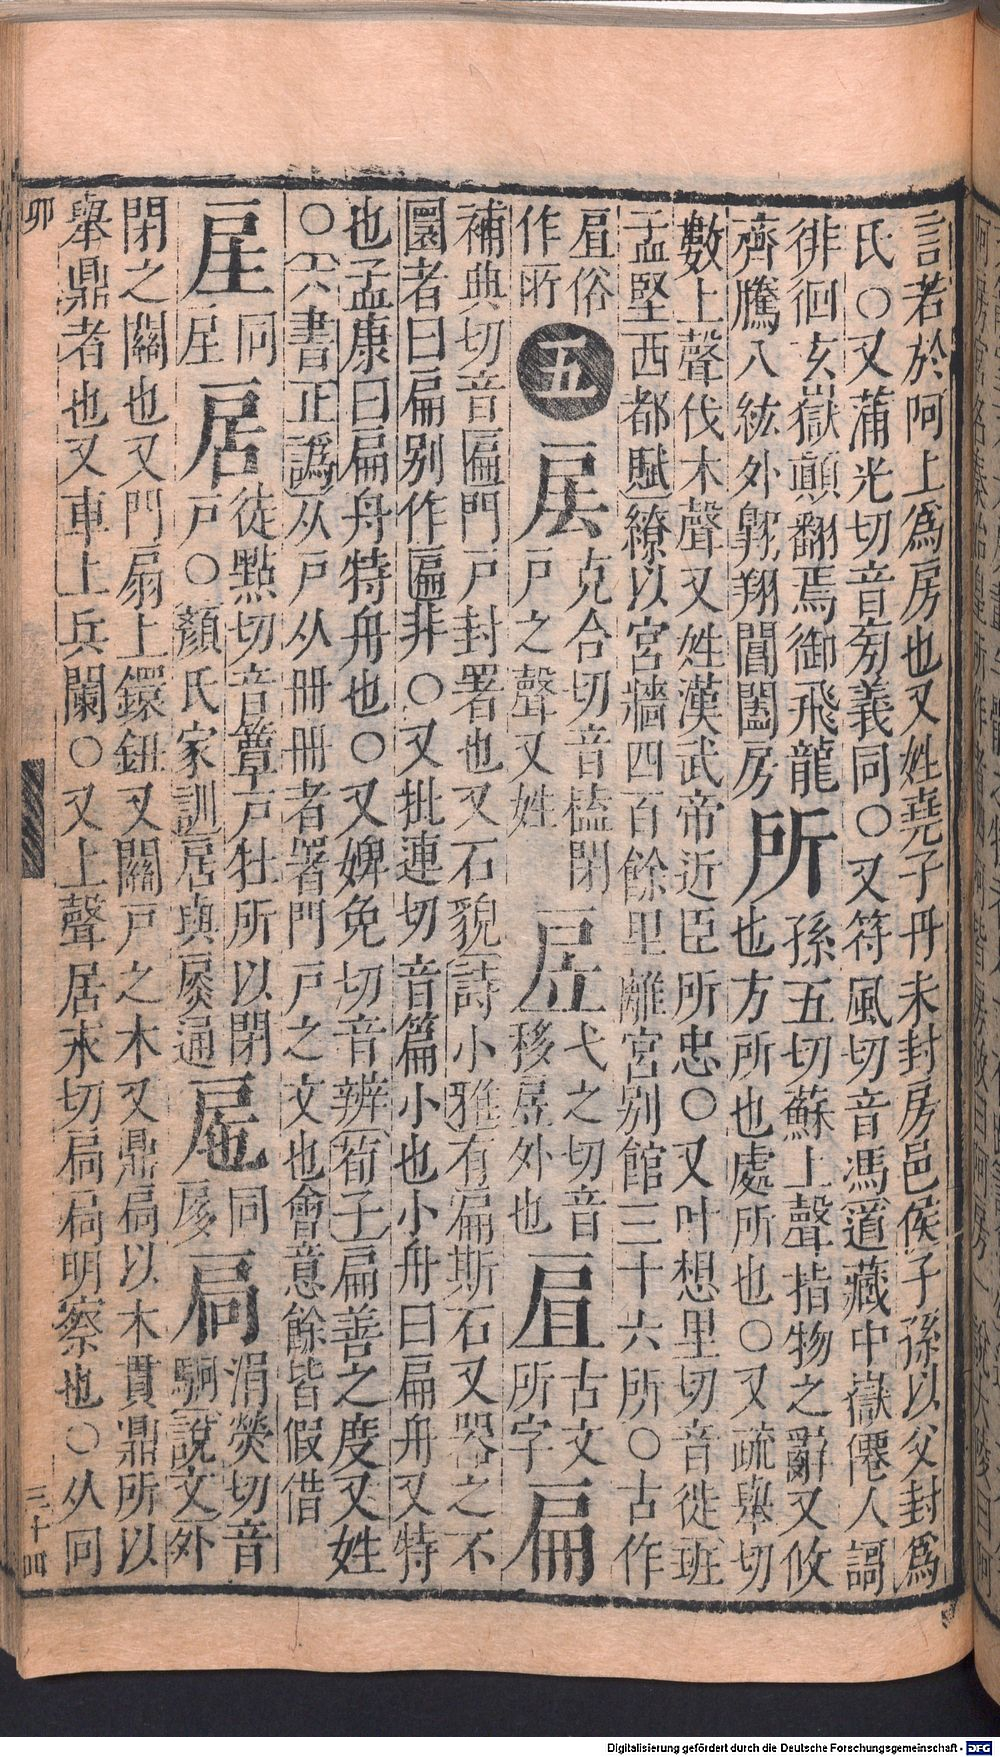 言若於阿上爲房也又姓堯子丹未封房邑侯子孫以父封爲
氏○又蒲光切音旁義同○又符風切音馮道藏中嶽僊人謌
徘徊玄嶽巔翻焉御飛龍
齊騰八紘外翺翔閶闔房所孫五切蘇上聲指物之辭又攸
也方所也處所也○又疏舉切
數上聲伐木聲又姓漢武帝近臣所忠○又叶想里切音徙班
孟堅西都賦繚以宮牆四百餘里離宮別館三十六所○古作
㞐俗
作㪽五㕎克合切音榼閉
戸之聲又姓扅弋之切音
移扊扅外也㞐古文
所字扁
補典切音匾門戸封署也又石貌詩小雅有扁斯石又器之不
圜者曰扁別作匾非○又批連切音篇小也小舟曰扁舟又特
也孟康曰扁舟特舟也○又婢免切音辨荀子扁善之度又姓
○六書正譌从戸从冊冊者署門戸之文也會意餘皆假借
同
居徒點切音簟戸牡所以閉
戸○顏氏家訓居與扊通同
扊扃涓熒切音
駉說文外
閉之關也又門扇上鐶鈕又關戸之木又鼎扃以木貫鼎所以
舉鼎者也又車上兵闌○又上聲居永切扃扃明察也○从冋
卯
三十四
Digitalisierung gefördert durch die Deutsche Forschungsgemeinschaft - DFG